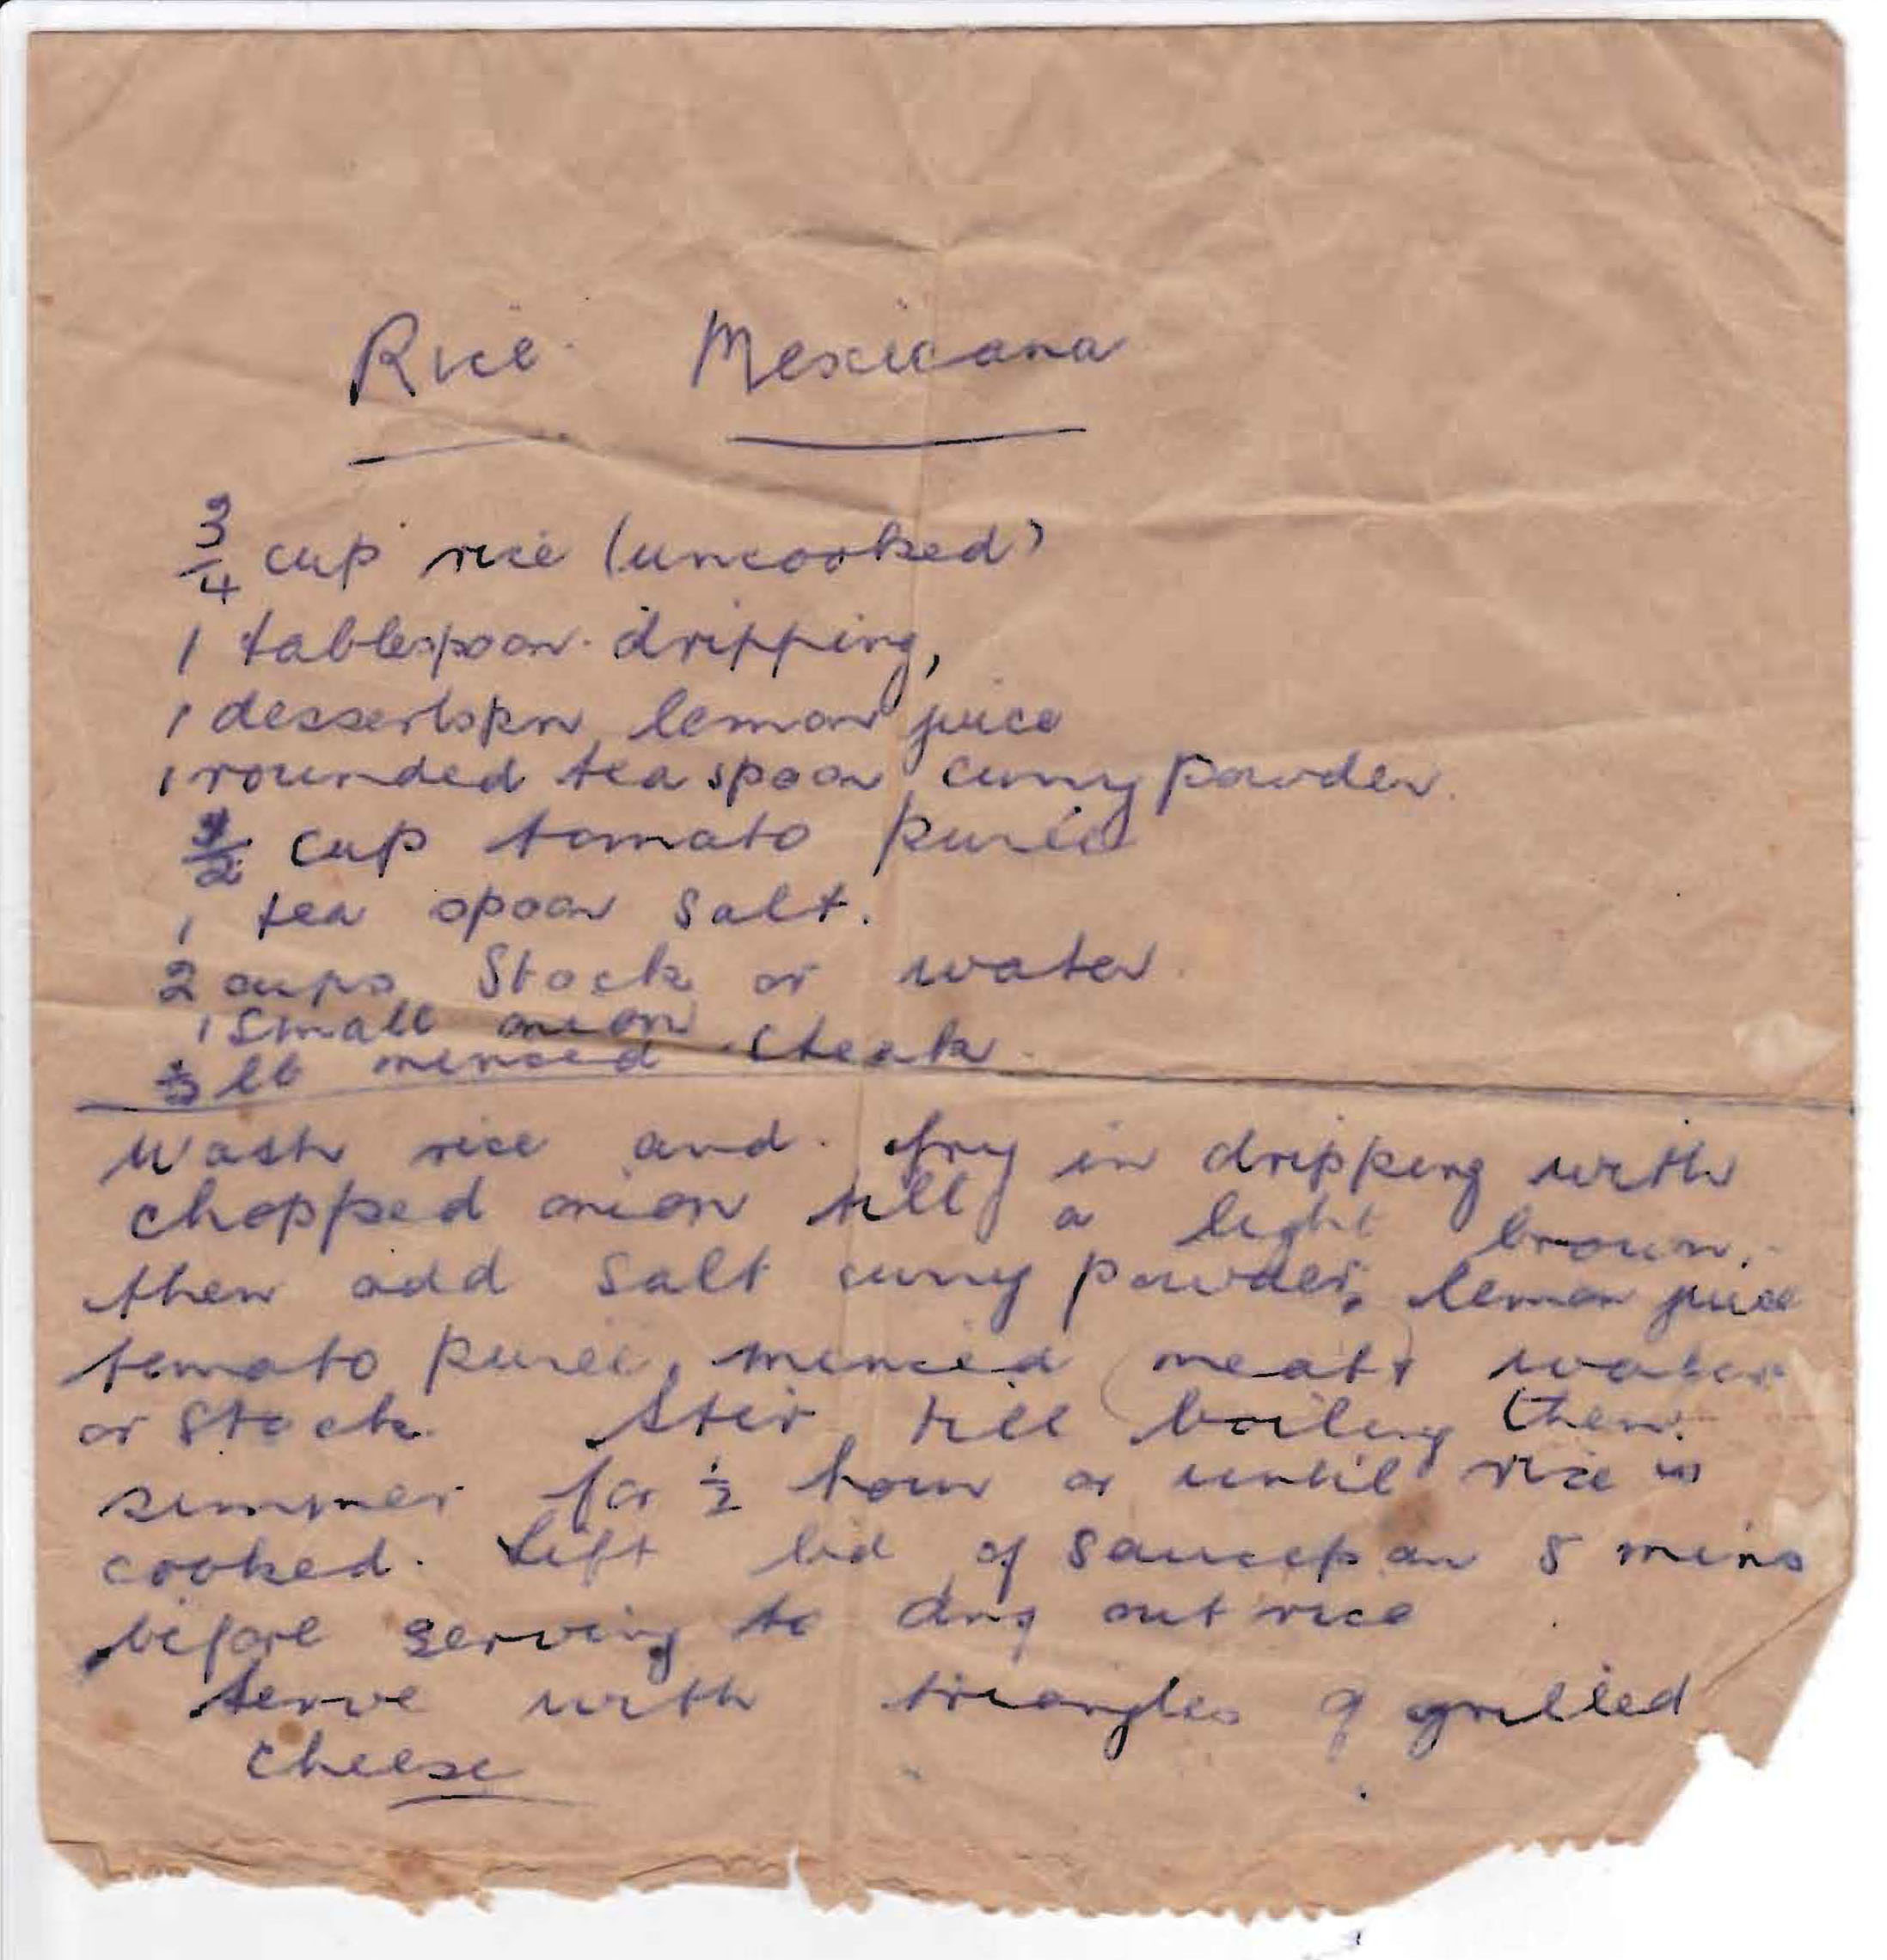 Rice Mexicana
3/4 cup rice (uncooked)
1 tablespoon dripping,
1 dessertspn lemon juice
1 rounded teaspoon curry powder.
1/2 cup tomato purée
1 tea spoon salt.
2 cups Stock or water.
1 small onion
lb minced steak.
Wash rice and fry in dripping with
chopped onion till a light brown,
then add salt curry powder, lemon juice
tomato purée, minced meat & water
or stock. Stir till boiling then
simmer for 1/2 hour or until rice is
cooked. Lift lid of saucepan 5 mins
before serving to dry out rice
Serve with triangles of grilled
cheese